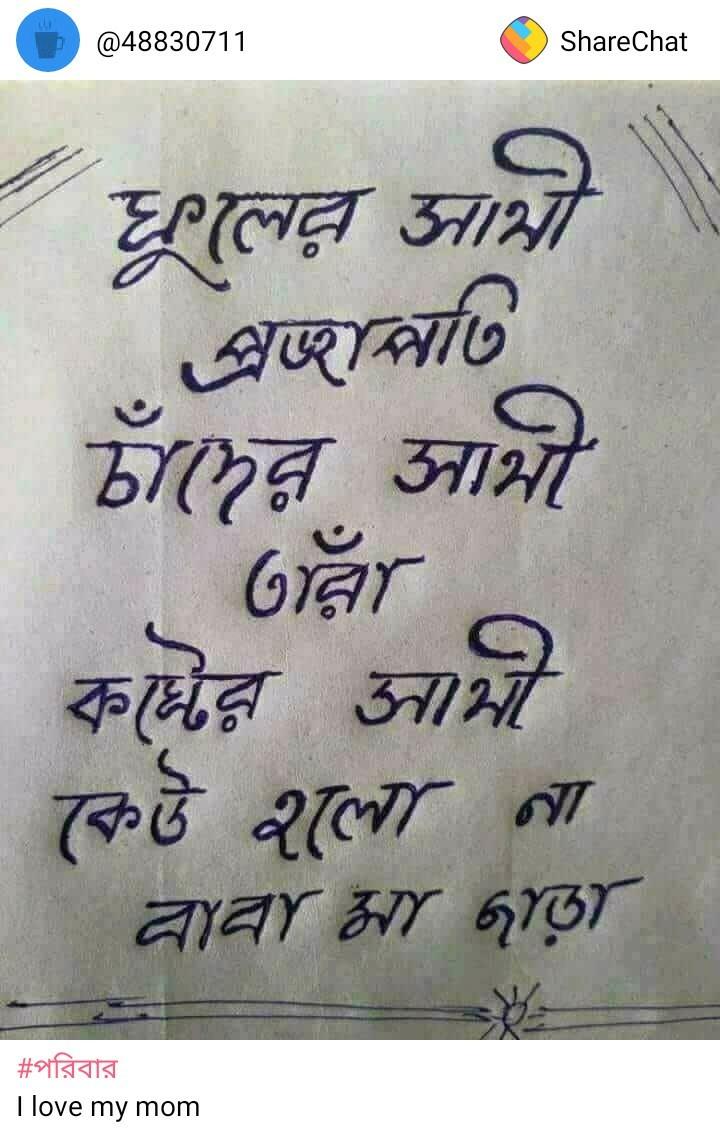 @48830711
ShareChat
ফুলের সাথী
প্রজাপতি
চাঁদের সাথী
তাঁরা
কষ্টের সাথী
কেউ হলো না
বাবা মা ছাড়া
#পরিবার
I love my mom